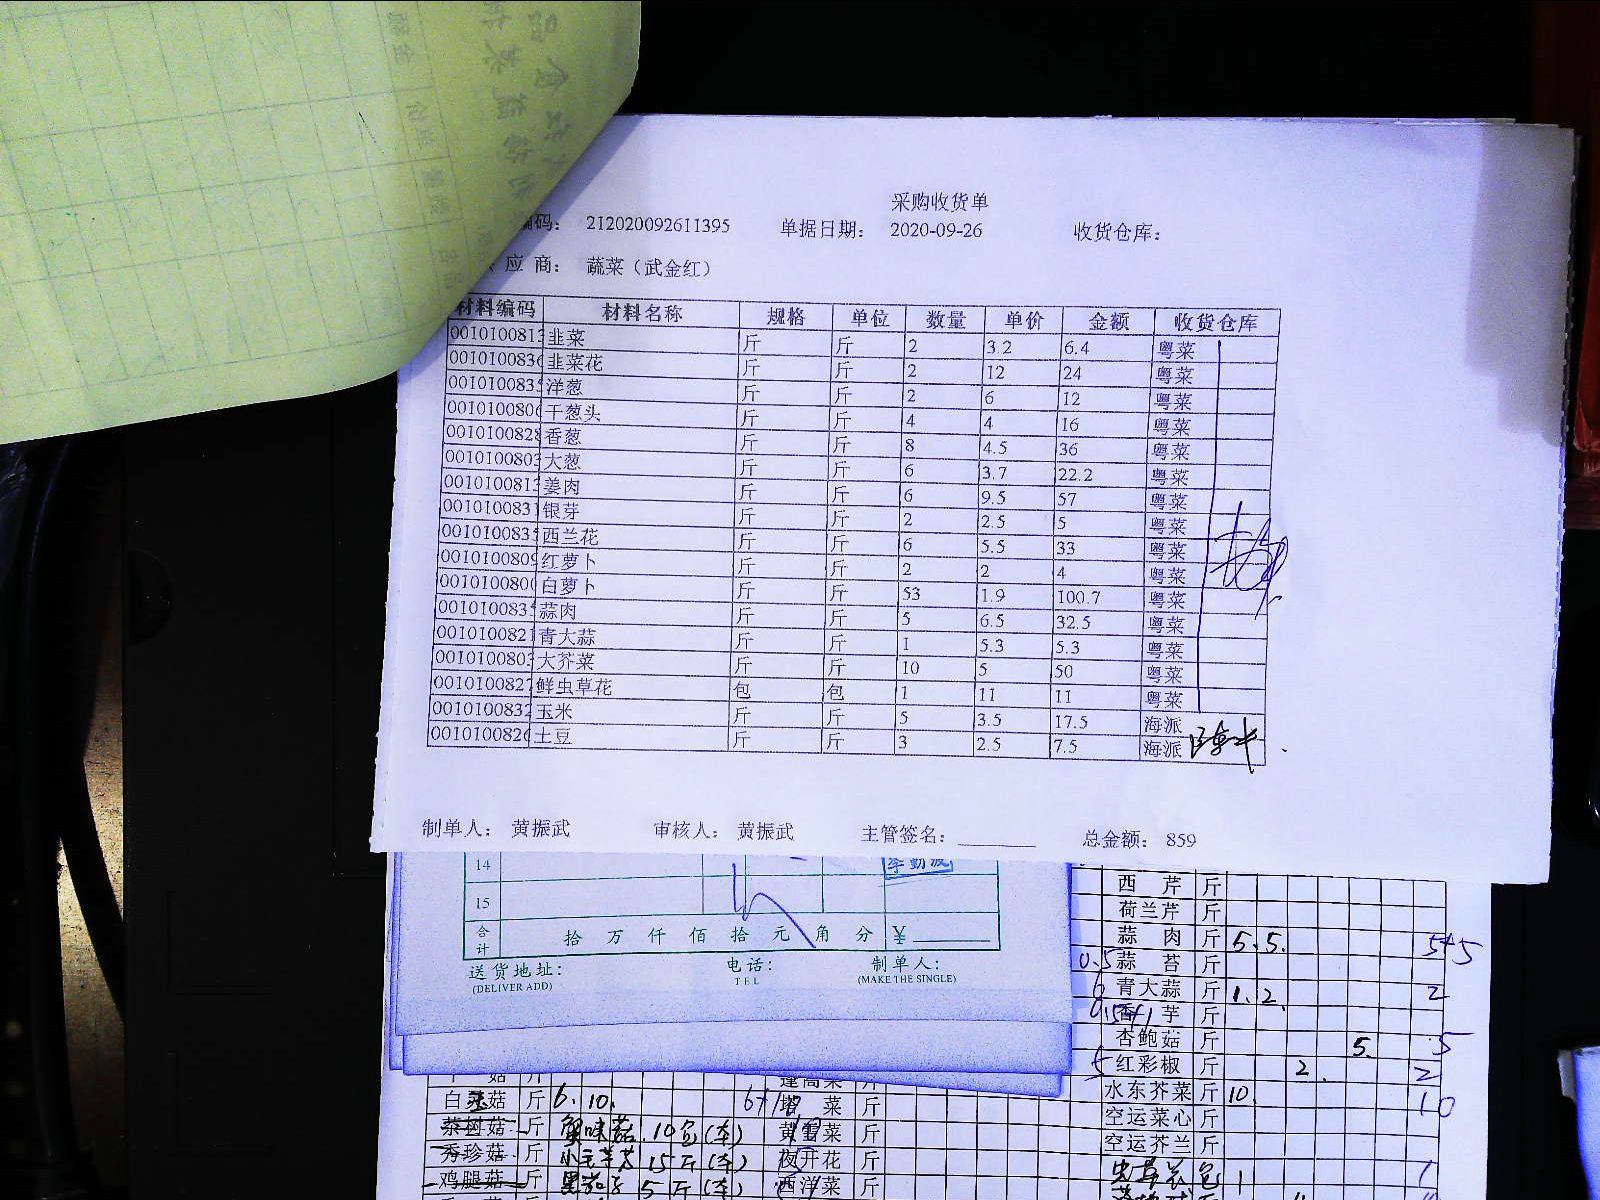 采购收货单
编码： 212020092611395 单据日期： 2020-09-26 收货仓库：
应 商： 蔬菜（武金红）
材料编码 材料名称 规格 单位 数量 单价 金额 收货仓库
001010081 韭菜 斤 斤 2 3.2 6.4 粤菜
001010083 韭菜花 斤 斤 2 12 24 粤菜
001010083 洋葱 斤 斤 2 6 12 粤菜
001010080 干葱头 斤 斤 4 4 16 粤菜
001010082 香葱 斤 斤 8 4.5 36 粤菜
001010080 大葱 斤 斤 6 3.7 22.2 粤菜
001010081 姜肉 斤 斤 6 9.5 57 粤菜
001010083 银芽 斤 斤 2 2.5 5 粤菜
001010083 西兰花 斤 斤 6 5.5 33 粤菜
001010080 红萝卜 斤 斤 2 2 4 粤菜
001010080 白萝卜 斤 斤 53 1.9 100.7 粤菜
001010083 蒜肉 斤 斤 5 6.5 32.5 粤菜
001010082 青大蒜 斤 斤 1 5.3 5.3 粤菜
001010080 大芥菜 斤 斤 10 5 50 粤菜
001010082 鲜虫草花 包 包 1 11 11 粤菜
001010083 玉米 斤 斤 5 3.5 17.5 海派
001010082 土豆 斤 斤 3 2.5 7.5 海派
制单人： 黄振武 审核人： 黄振武 主管签名： 总金额： 859
14
15
合计 拾 万 仟 佰 拾 元 角 分 ¥
送货地址： 电话： 制单人：
(DELIVER ADD) TEL (MAKE THE SINGLE)
西 芹 斤
荷兰芹 斤
蒜 肉 斤 5. 5. 5+5
0.5 蒜 苔 斤
6 青大蒜 斤 1. 2 2
香 芋 斤
杏鲍菇 斤 5. 5
5 红彩椒 斤 2. 2
水东芥菜 斤 10. 10
空运菜心 斤
空运芥兰 斤
虫草花 包 1 1
白玉菇 斤 6. 10. 6+10 菜 斤
茶树菇 斤 蟹味菇 10包(本) 黄雪菜 斤
秀珍菇 斤 15斤(本) 夜开花 斤
鸡腿菇 斤 黑茄子 5斤(本) 西洋菜 斤